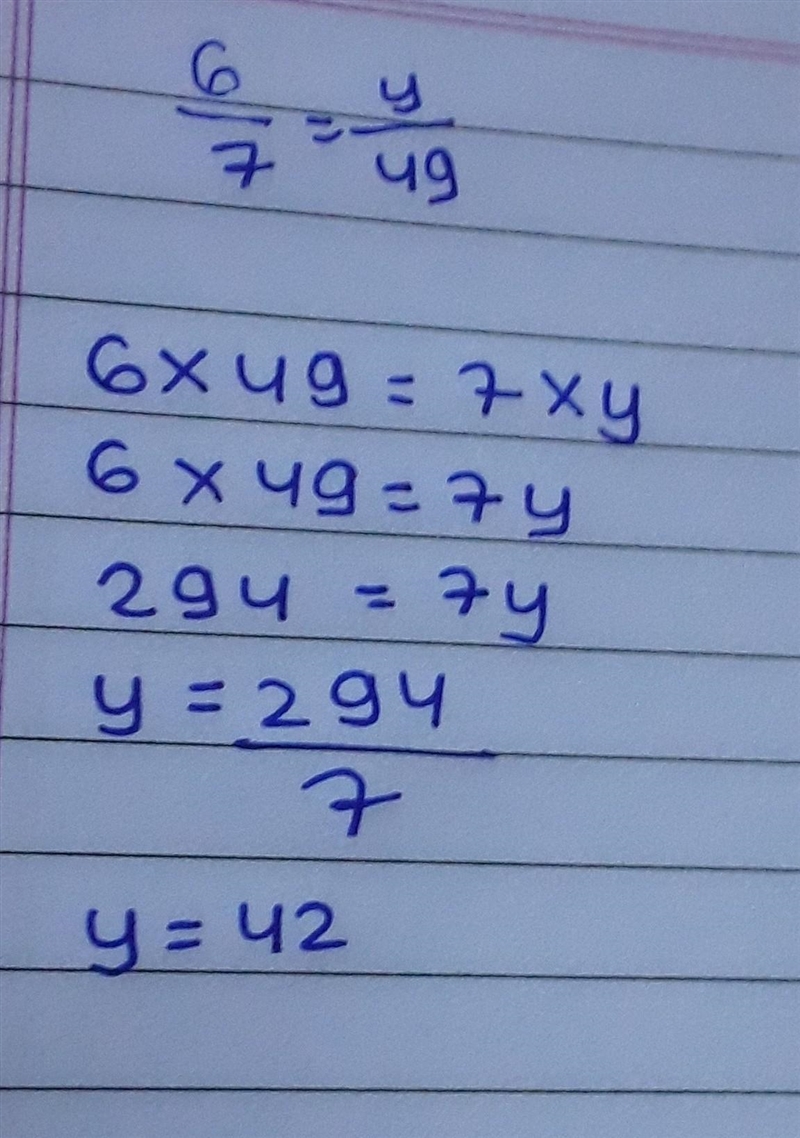 6/7 = y/49
6 × 49 = 7 × y
6 × 49 = 7y
294 = 7y
y = 294/7
y = 42